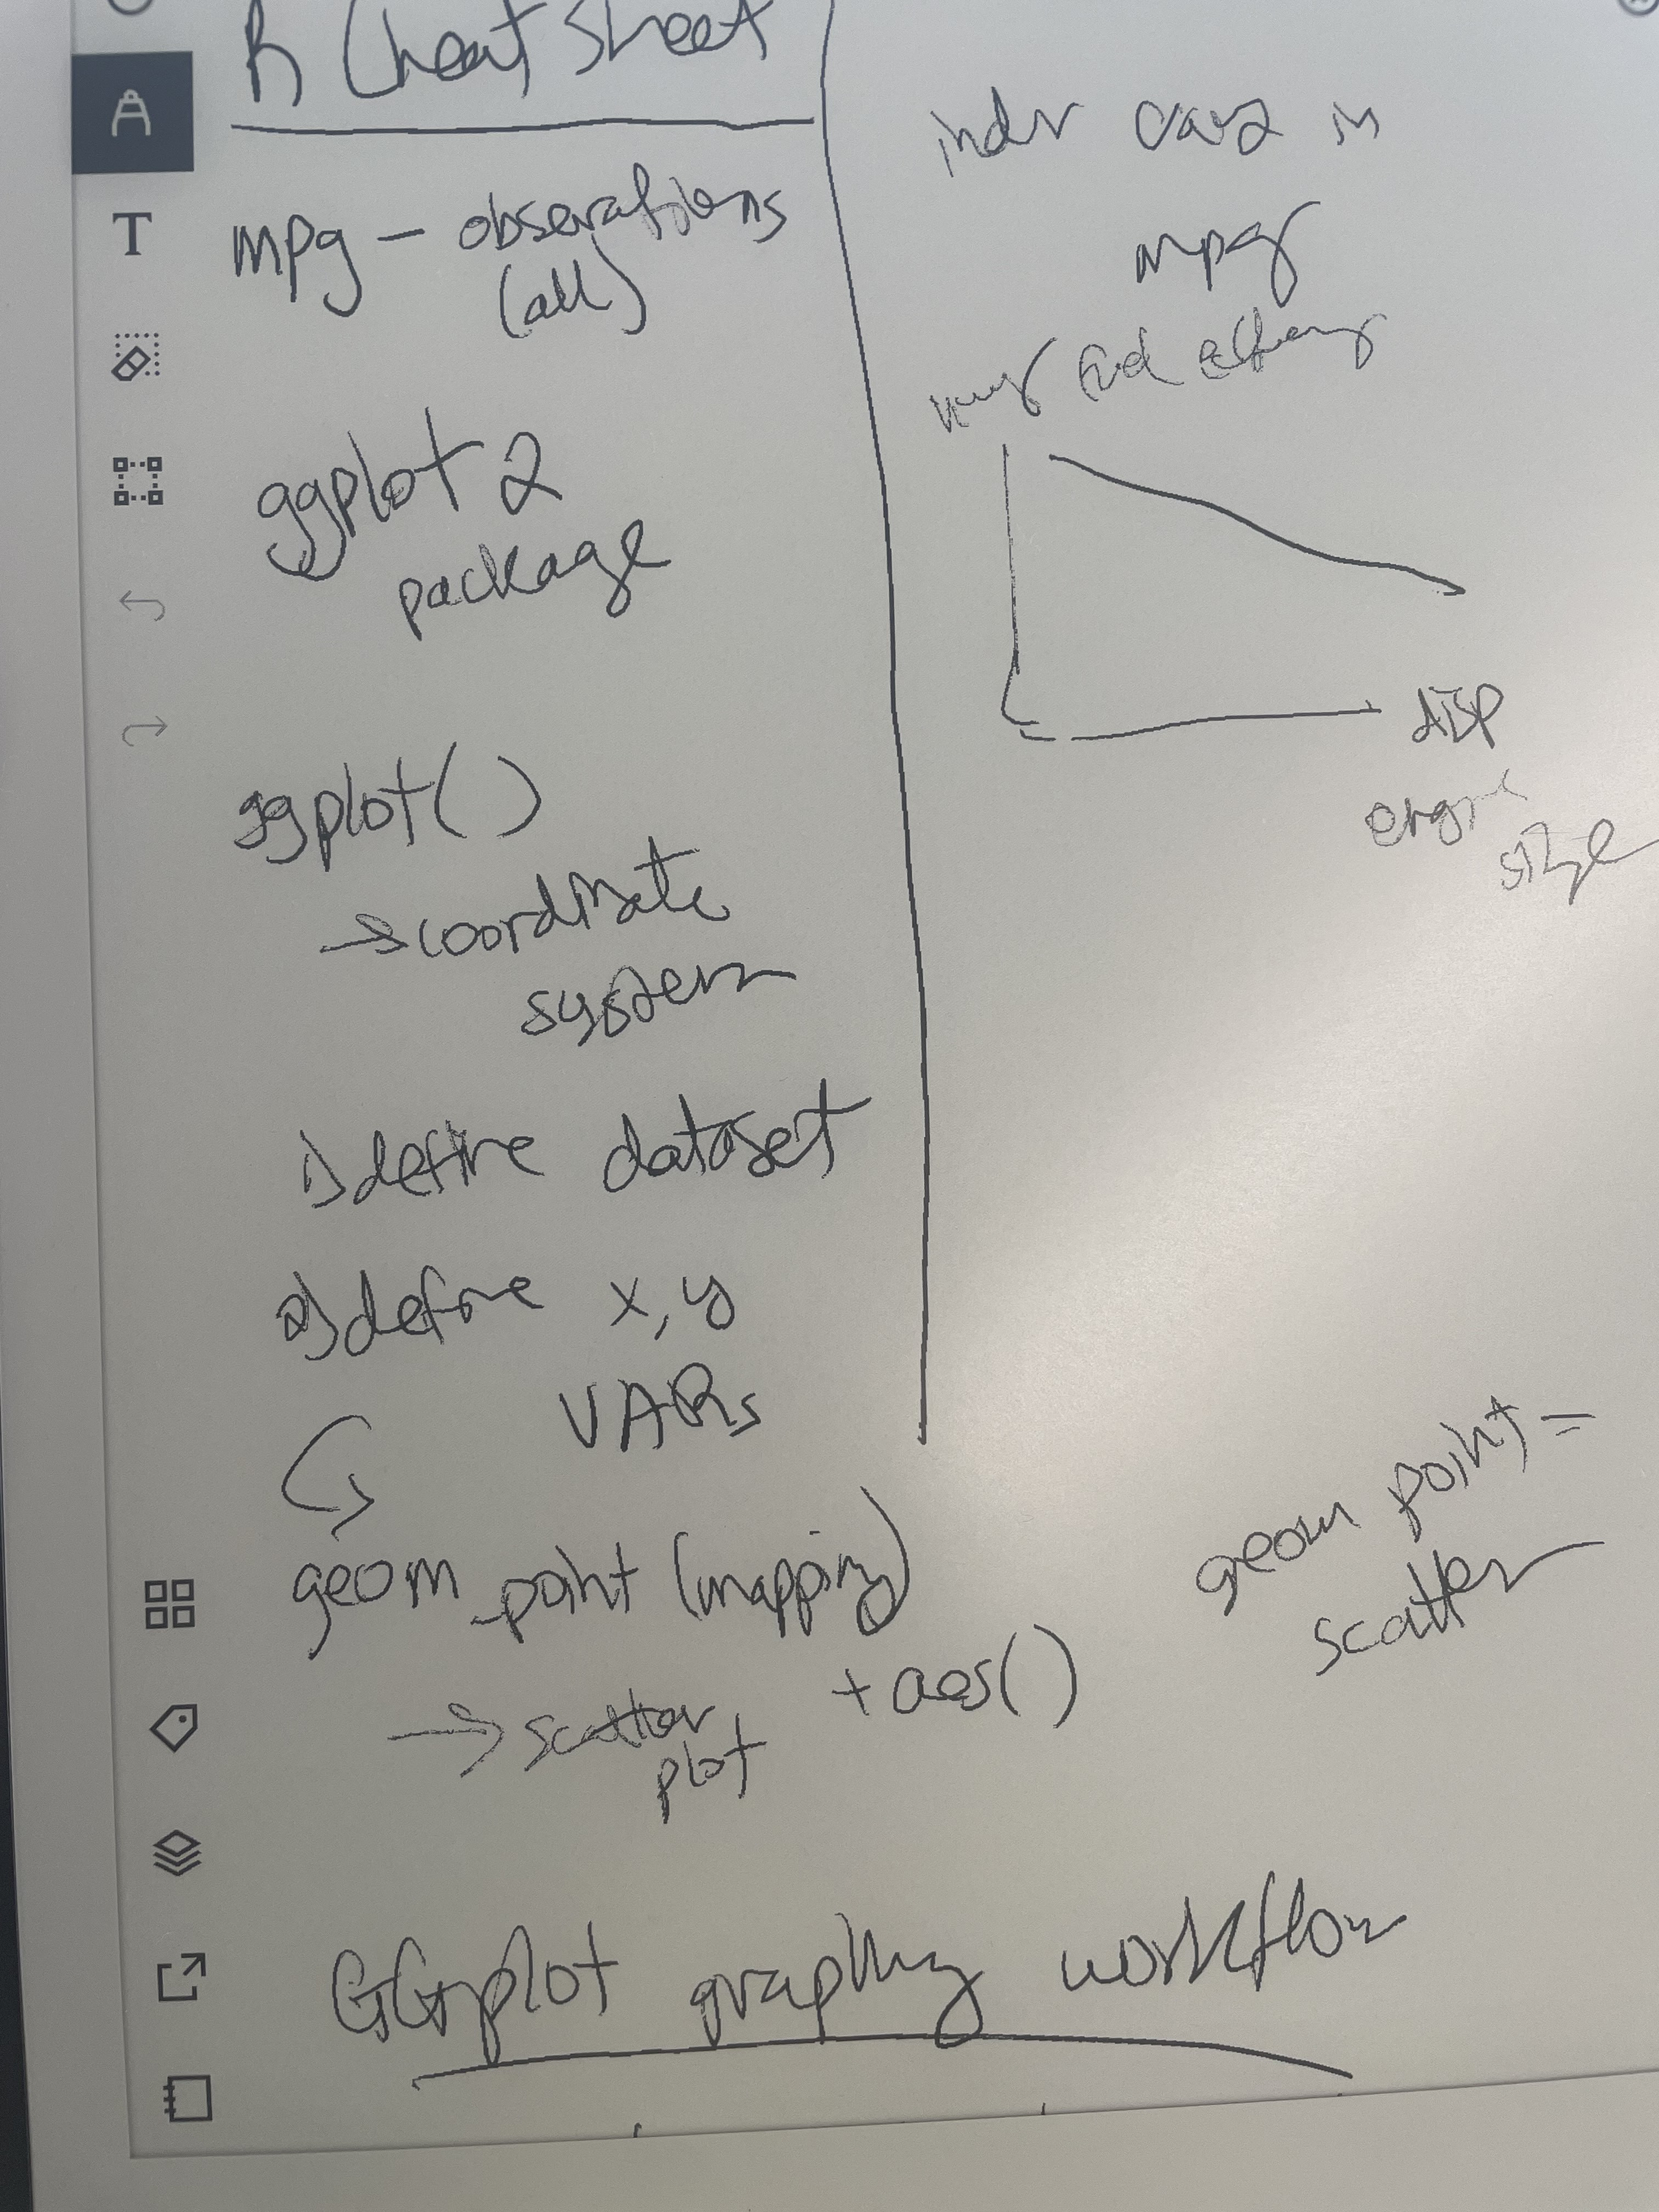 R Cheat Sheet
mpg – observations
(all)
ggplot 2
package
ggplot()
→ coordinate
system
1) define dataset
2) define x, y
VARs
geom_point (mapping)
+ aes()
→ scatter
plot
in
mpg
hwy fuel efficiency
disp
engine
size
geom point =
scatter
GGplot graphing workflow
T